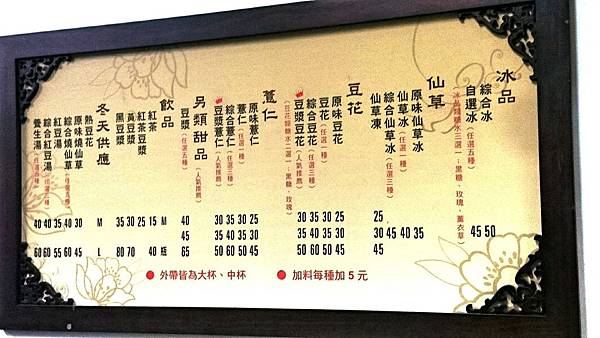 冰品
綜合冰
自選冰(任選五種)
(冰品類糖水三選一:黑糖、玫瑰、薰衣草)
仙草
原味仙草冰
仙草冰(任選一種)
綜合仙草冰(任選三種)
仙草凍
豆花
原味豆花
豆花(任選一種)
綜合豆花(任選三種)
豆漿豆花(人氣推薦)
(豆花類糖水二選一:黑糖、玫瑰)
薏仁
原味薏仁
薏仁(任選一種)
綜合薏仁(任選三種)
豆漿薏仁(人氣推薦)
另類甜品(人氣推薦)
豆漿(任選五種)
飲品
紅茶
紅茶豆漿
黃豆漿
黑豆漿
冬天供應
熱豆花
原味燒仙草
綜合燒仙草(任選五種)
紅豆湯
綜合紅豆湯(任選三種)
養生湯(任選四種)
40 40 35 40 30 M 35 30 25 15 M 40 30 35 30 25 30 35 30 25 25
45 45 40 35 30 45 40 35 30 30 45 40 35 45 50
60 60 55 60 45 L 80 70 40 瓶 65 50 60 50 45 50 60 50 45 45
● 外帶皆為大杯、中杯 ● 加料每種加 5 元